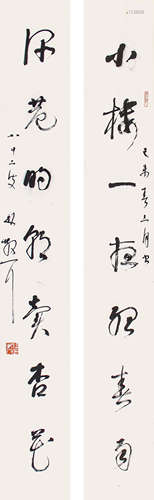 小楼一夜听春雨
己未春三月书
深巷明朝卖杏花
八十二叟林散之